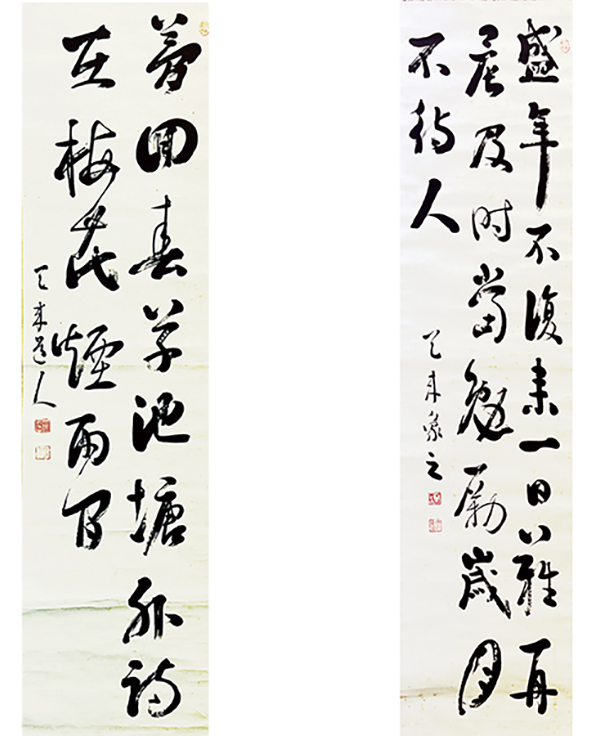 盛年不復来一日難再
晨及时當勉勵歲月
不待人
天来象之
夢回春草池塘外詩
在梅花煙雨間
天来道人